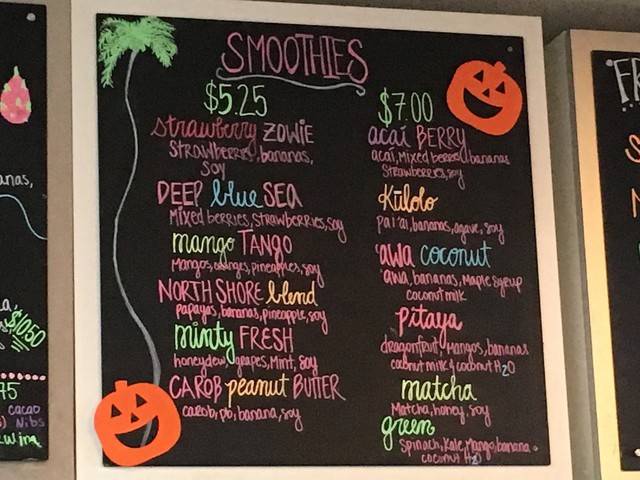 SMOOTHIES
$5.25
strawberry ZOWIE
STRAWberries, bananas,
SOY
DEEP blue SEA
Mixed berries, strawberries, soy
mango TANGO
Mangos, oranges, pineapples, soy
NORTH SHORE blend
papayas, bananas, pineapple, soy
minty FRESH
honeydew, grapes, Mint, soy
CAROB peanut BUTTER
carob, pb, banana, soy
$7.00
acai BERRY
acai, Mixed berries, bananas
strawberries, soy
Kūlolo
pa'i'ai, bananas, agave, soy
'awa coconut
'awa, bananas, Maple syrup
coconut milk
pitaya
dragonfruit, Mangos, bananas
coconut milk & coconut H2O
matcha
Matcha, honey, soy
green
Spinach, Kale, Mango, banana
coconut H2O
anas,
$10.50
75
cacao
Nibs
FR